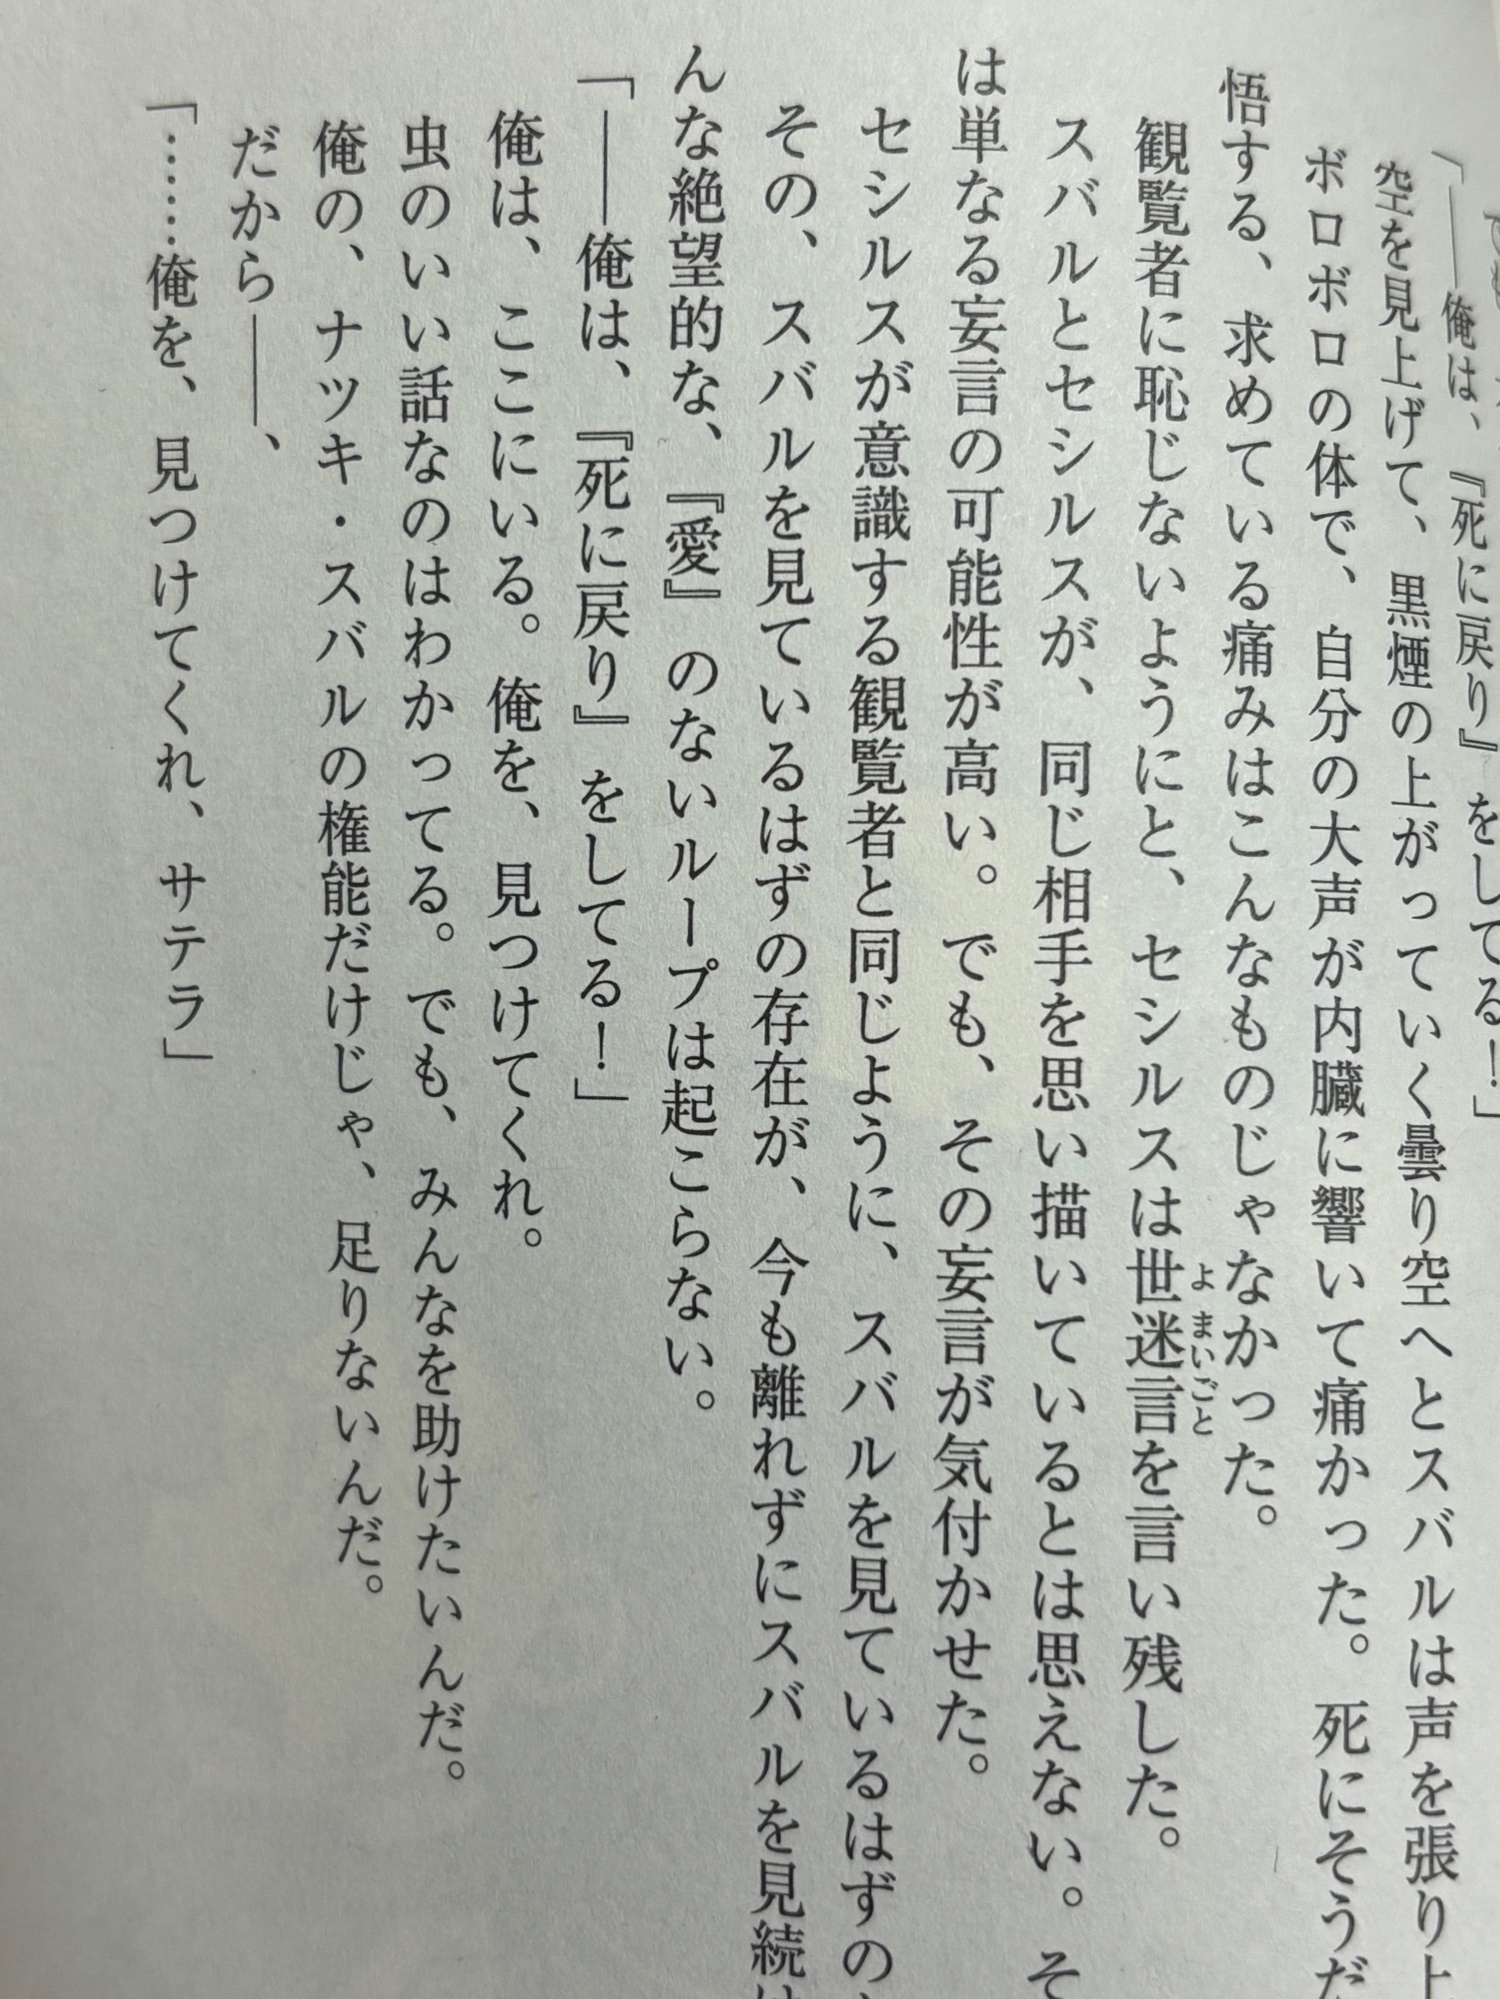 「――俺は、『死に戻り』をしてる！」
空を見上げて、黒煙の上がっていく曇り空へとスバルは声を張り上
ボロボロの体で、自分の大声が内臓に響いて痛かった。死にそうだ
悟する、求めている痛みはこんなものじゃなかった。
観覧者に恥じないようにと、セシルスは世迷言を言い残した。
スバルとセシルスが、同じ相手を思い描いているとは思えない。そ
は単なる妄言の可能性が高い。でも、その妄言が気付かせた。
セシルスが意識する観覧者と同じように、スバルを見ているはずの
その、スバルを見ているはずの存在が、今も離れずにスバルを見続け
んな絶望的な、『愛』のないループは起こらない。
「――俺は、『死に戻り』をしてる！」
俺は、ここにいる。俺を、見つけてくれ。
虫のいい話なのはわかってる。でも、みんなを助けたいんだ。
俺の、ナツキ・スバルの権能だけじゃ、足りないんだ。
だから――、
「……俺を、見つけてくれ、サテラ」